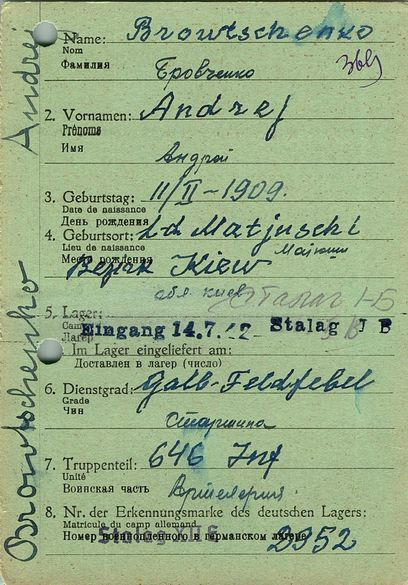 Browtschenko Andrej
1. Name: Browtschenko
Nom
Фамилия
Бровченко
2. Vornamen: Andrej
Prénoms
Имя
Андрей
3. Geburtstag: 11/II-1909.
Date de naissance
День рождения
4. Geburtsort: Matjuschi
Lieu de naissance
Место рождения
Bezirk Kiew
обл. Киев Сталаг I-Б
5. Lager:
Camp
Лагер
Eingang 14.7.42 Stalag J B
Im Lager eingeliefert am:
Доставлен в лагер (число)
6. Dienstgrad: Galb-Feldfebel
Grade
Чин
Старшина
7. Truppenteil: 646 Inf
Unité
Воинская часть
Артилерия
8. Nr. der Erkennungsmarke des deutschen Lagers:
Matricule du camp allemand
Номер военнопленного в германском лагере
Stalag 2952